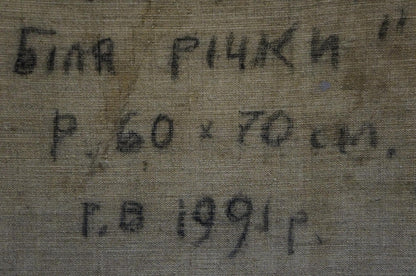 Біля річки"
Р. 60 x 70 см.
Г.В. 1991 р.